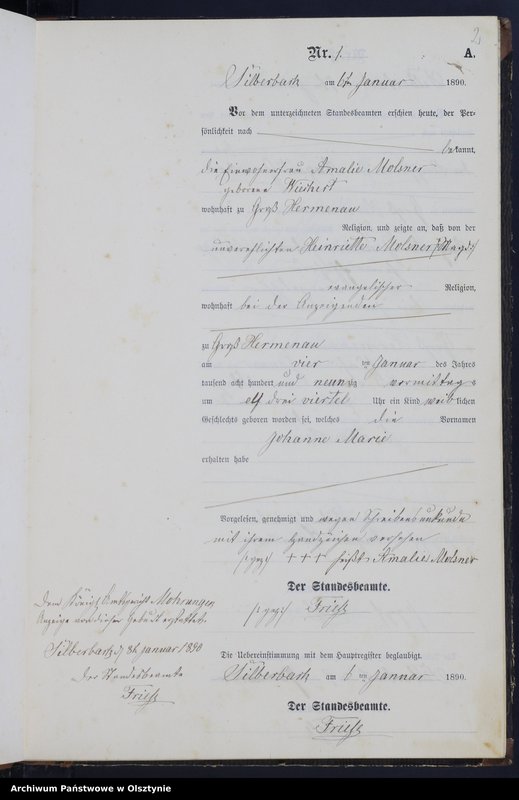 2
Nr. 1.
A.
Silberbach am 6ten Januar 1890.
Vor dem unterzeichneten Standesbeamten erschien heute, der Per-
sönlichkeit nach
bekannt,
die Einwohnerfrau Amalie Molsner
geborene Wichert
wohnhaft zu Groß Hermenau
Religion, und zeigte an, daß von der
unverehelichten Heinriette Molsner, Magd
evangelischer Religion,
wohnhaft bei der Anzeigenden
zu Groß Hermenau
am vier ten Januar des Jahres
tausend acht hundert und neunzig vormittags
um elf drei viertel Uhr ein Kind weiblichen
Geschlechts geboren worden sei, welches die Vornamen
Johanne Marie
erhalten habe
Vorgelesen, genehmigt und wegen Schreibensunkunde
mit ihrem Handzeichen versehen
gez +++ heißt Amalie Molsner
Der Standesbeamte.
gez Friese
Dem Königl Amtsgericht Mohrungen
Anzeige von dieser Geburt erstattet.
Silberbach, d. Januar 1890
Der Standesbeamte
Friese
Die Uebereinstimmung mit dem Hauptregister beglaubigt.
Silberbach am 6 ten Januar 1890.
Der Standesbeamte.
Friese
Archiwum Państwowe w Olsztynie